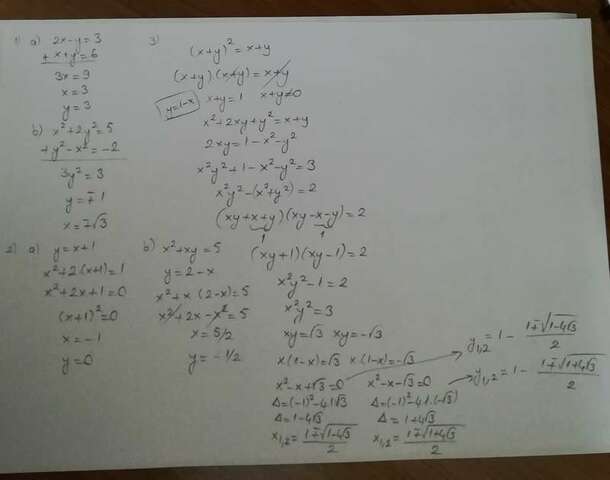 1) a) 2x-y=3
+ x+y=6
3x=9
x=3
y=3
b) x²+2y²=5
+y²-x²=-2
3y²=3
y=∓1
x=∓√3
2) a) y=x+1
x²+2(x+1)=1
x²+2x+1=0
(x+1)²=0
x=-1
y=0
b) x²+xy=5
y=2-x
x²+x(2-x)=5
x²+2x-x²=5
x=5/2
y=-1/2
3)
(x+y)²=x+y
(x+y).(x+y)=x+y
y=1-x x+y=1 x+y≠0
x²+2xy+y²=x+y
2xy=1-x²-y²
x²y²+1-x²-y²=3
x²y²-(x²+y²)=2
(xy+x+y)(xy-x-y)=2
1 1
(xy+1)(xy-1)=2
x²y²-1=2
x²y²=3
xy=√3 xy=-√3
x(1-x)=√3 x(1-x)=-√3
x²-x+√3=0 x²-x-√3=0
Δ=(-1)²-4.1.√3 Δ=(-1)²-4.1.(-√3)
Δ=1-4√3 Δ=1+4√3
x₁,₂=1∓√1-4√3/2 x₁,₂=1∓√1+4√3/2
y₁,₂=1-1∓√1-4√3/2
y₁,₂=1-1∓√1+4√3/2